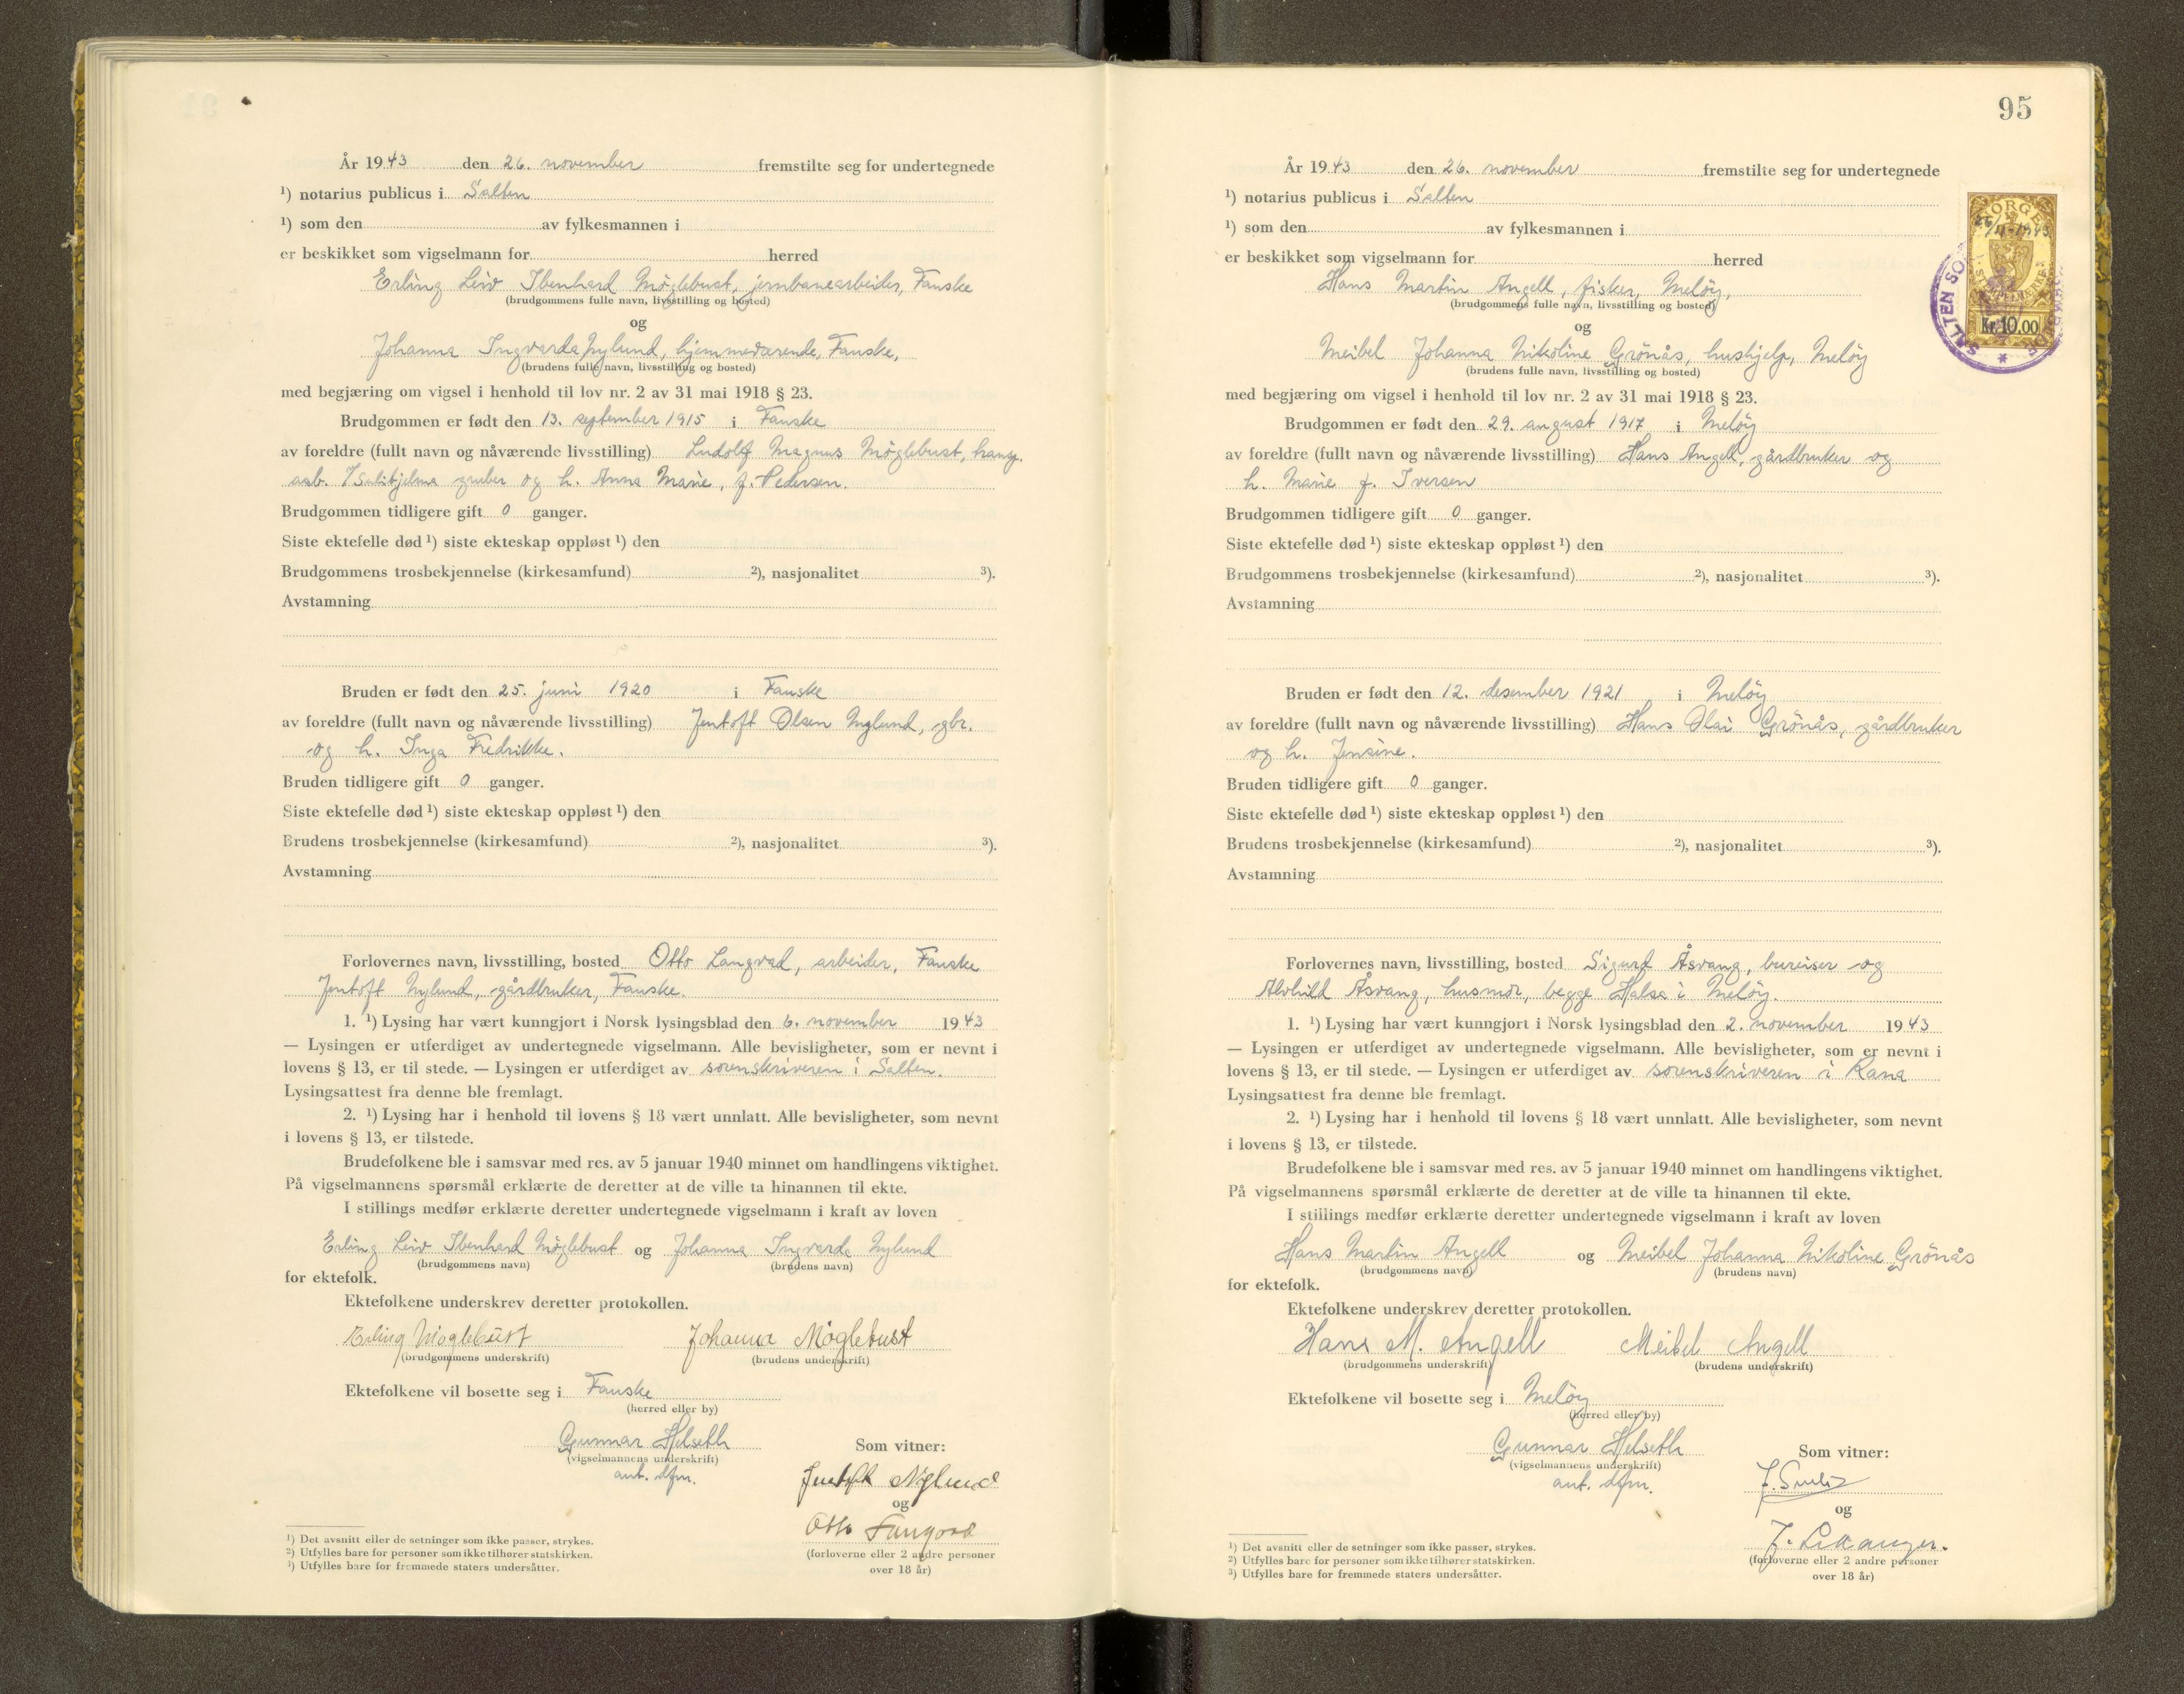 År 1943 den 26. november fremstilte seg for undertegnede
¹) notarius publicus i Salten
¹) som den av fylkesmannen i
er beskikket som vigselmann for herred
Erling Leiv Ibenhard Møglebust, jernbanearbeider, Fauske
(brudgommens fulle navn, livsstilling og bosted)
og
Johanna Ingvarda Nylund, hjemmeværende, Fauske,
(brudens fulle navn, livsstilling og bosted)
med begjæring om vigsel i henhold til lov nr. 2 av 31 mai 1918 § 23.
Brudgommen er født den 13. september 1915 i Fauske
av foreldre (fullt navn og nåværende livsstilling) Ludolf Magnus Møglebust,
arb. Sulitjelma gruber og h. Anna Marie, f. Pedersen.
Brudgommen tidligere gift 0 ganger.
Siste ektefelle død ¹) siste ekteskap oppløst ¹) den
Brudgommens trosbekjennelse (kirkesamfund) ²), nasjonalitet ³).
Avstamning
Bruden er født den 25. juni 1920 i Fauske
av foreldre (fullt navn og nåværende livsstilling) Jentoft Olsen Nylund, gbr.
og h. Inga Fredrikke.
Bruden tidligere gift 0 ganger.
Siste ektefelle død ¹) siste ekteskap oppløst ¹) den
Brudens trosbekjennelse (kirkesamfund) ²), nasjonalitet ³).
Avstamning
Forlovernes navn, livsstilling, bosted Otto Langvad, arbeider, Fauske
Jentoft Nylund, gårdbruker, Fauske.
1. ¹) Lysing har vært kunngjort i Norsk lysingsblad den 6. november 1943
— Lysingen er utferdiget av undertegnede vigselmann. Alle bevisligheter, som er nevnt i
lovens § 13, er til stede. — Lysingen er utferdiget av sorenskriveren i Salten.
Lysingsattest fra denne ble fremlagt.
2. ¹) Lysing har i henhold til lovens § 18 vært unnlatt. Alle bevisligheter, som nevnt
i lovens § 13, er tilstede.
Brudefolkene ble i samsvar med res. av 5 januar 1940 minnet om handlingens viktighet.
På vigselmannens spørsmål erklærte de deretter at de ville ta hinannen til ekte.
I stillings medfør erklærte deretter undertegnede vigselmann i kraft av loven
Erling Leiv Ibenhard Møglebust og Johanna Ingvarda Nylund
(brudgommens navn) (brudens navn)
for ektefolk.
Ektefolkene underskrev deretter protokollen.
Erling Møglebust Johanna Møglebust
(brudgommens underskrift) (brudens underskrift)
Ektefolkene vil bosette seg i Fauske
(herred eller by)
Gunnar Helseth
(vigselmannens underskrift)
aut. dfm.
Som vitner:
Jentoft Nylund
og
Otto Langvad
(forloverne eller 2 andre personer
over 18 år)
¹) Det avsnitt eller de setninger som ikke passer, strykes.
²) Utfylles bare for personer som ikke tilhører statskirken.
³) Utfylles bare for fremmede staters undersåtter.
95
År 1943 den 26. november fremstilte seg for undertegnede
¹) notarius publicus i Salten
¹) som den av fylkesmannen i
er beskikket som vigselmann for herred
NORGE
26/11-1943
Kr. 10.00
SALTEN
Hans Martin Angell, fisker, Meløy,
(brudgommens fulle navn, livsstilling og bosted)
og
Meibel Johanna Nikoline Grønås, hushjelp, Meløy
(brudens fulle navn, livsstilling og bosted)
med begjæring om vigsel i henhold til lov nr. 2 av 31 mai 1918 § 23.
Brudgommen er født den 29. august 1917 i Meløy
av foreldre (fullt navn og nåværende livsstilling) Hans Angell, gårdbruker og
h. Marie f. Iversen
Brudgommen tidligere gift 0 ganger.
Siste ektefelle død ¹) siste ekteskap oppløst ¹) den
Brudgommens trosbekjennelse (kirkesamfund) ²), nasjonalitet ³).
Avstamning
Bruden er født den 12. desember 1921 i Meløy
av foreldre (fullt navn og nåværende livsstilling) Hans Olai Grønås, gårdbruker
og h. Jensine.
Bruden tidligere gift 0 ganger.
Siste ektefelle død ¹) siste ekteskap oppløst ¹) den
Brudens trosbekjennelse (kirkesamfund) ²), nasjonalitet ³).
Avstamning
Forlovernes navn, livsstilling, bosted Sigurd Åsvang, bureiser og
Alvhild Åsvang, husmor, begge Halsa i Meløy.
1. ¹) Lysing har vært kunngjort i Norsk lysingsblad den 2. november 1943
— Lysingen er utferdiget av undertegnede vigselmann. Alle bevisligheter, som er nevnt i
lovens § 13, er til stede. — Lysingen er utferdiget av sorenskriveren i Rana
Lysingsattest fra denne ble fremlagt.
2. ¹) Lysing har i henhold til lovens § 18 vært unnlatt. Alle bevisligheter, som nevnt
i lovens § 13, er tilstede.
Brudefolkene ble i samsvar med res. av 5 januar 1940 minnet om handlingens viktighet.
På vigselmannens spørsmål erklærte de deretter at de ville ta hinannen til ekte.
I stillings medfør erklærte deretter undertegnede vigselmann i kraft av loven
Hans Martin Angell og Meibel Johanna Nikoline Grønås
(brudgommens navn) (brudens navn)
for ektefolk.
Ektefolkene underskrev deretter protokollen.
Hans M. Angell Meibel Angell
(brudgommens underskrift) (brudens underskrift)
Ektefolkene vil bosette seg i Meløy
(herred eller by)
Gunnar Helseth
(vigselmannens underskrift)
aut. dfm.
Som vitner:
og
(forloverne eller 2 andre personer
over 18 år)
¹) Det avsnitt eller de setninger som ikke passer, strykes.
²) Utfylles bare for personer som ikke tilhører statskirken.
³) Utfylles bare for fremmede staters undersåtter.